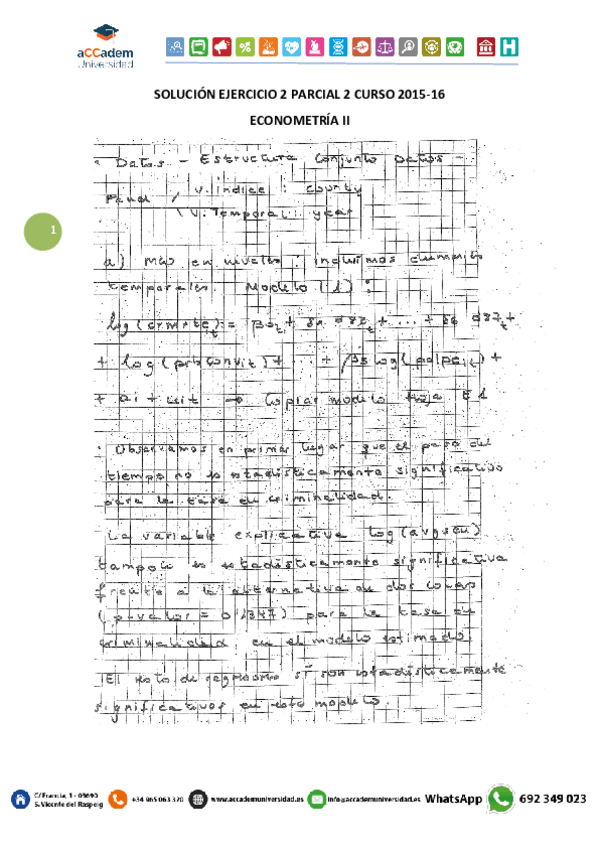 aCCadem
Universidad
SOLUCIÓN EJERCICIO 2 PARCIAL 2 CURSO 2015-16
ECONOMETRÍA II
Datos - Estructura conjunto datos -
Panel / V. índice : county
\ V. Temporal : year
1
a) MCO en niveles : incluimos dummies
temporales Modelo (1) :
log(crmrte)t = β0t + δ1 d82t + ... + δ6 d87t +
+ log(prbconvit) + ... + β8 log(polpcit) +
+ ai + uit → Copiar modelo Hoja E1
: Observamos en primer lugar que el paso del
tiempo no es estadísticamente significativo
para la tasa de criminalidad.
La variable explicativa log(avgsen)
tampoco es estadísticamente significativa
frente a la alternativa de dos colas
(p-valor = ) para la tasa de
criminalidad en el modelo estimado.
El resto de regresores sí son estadísticamente
significativos en este modelo.
C/ Francia, 1 - 03690
S. Vicente del Raspeig
+34 965 063 320
www.accademuniversidad.es
info@accademuniversidad.es
WhatsApp
692 349 023